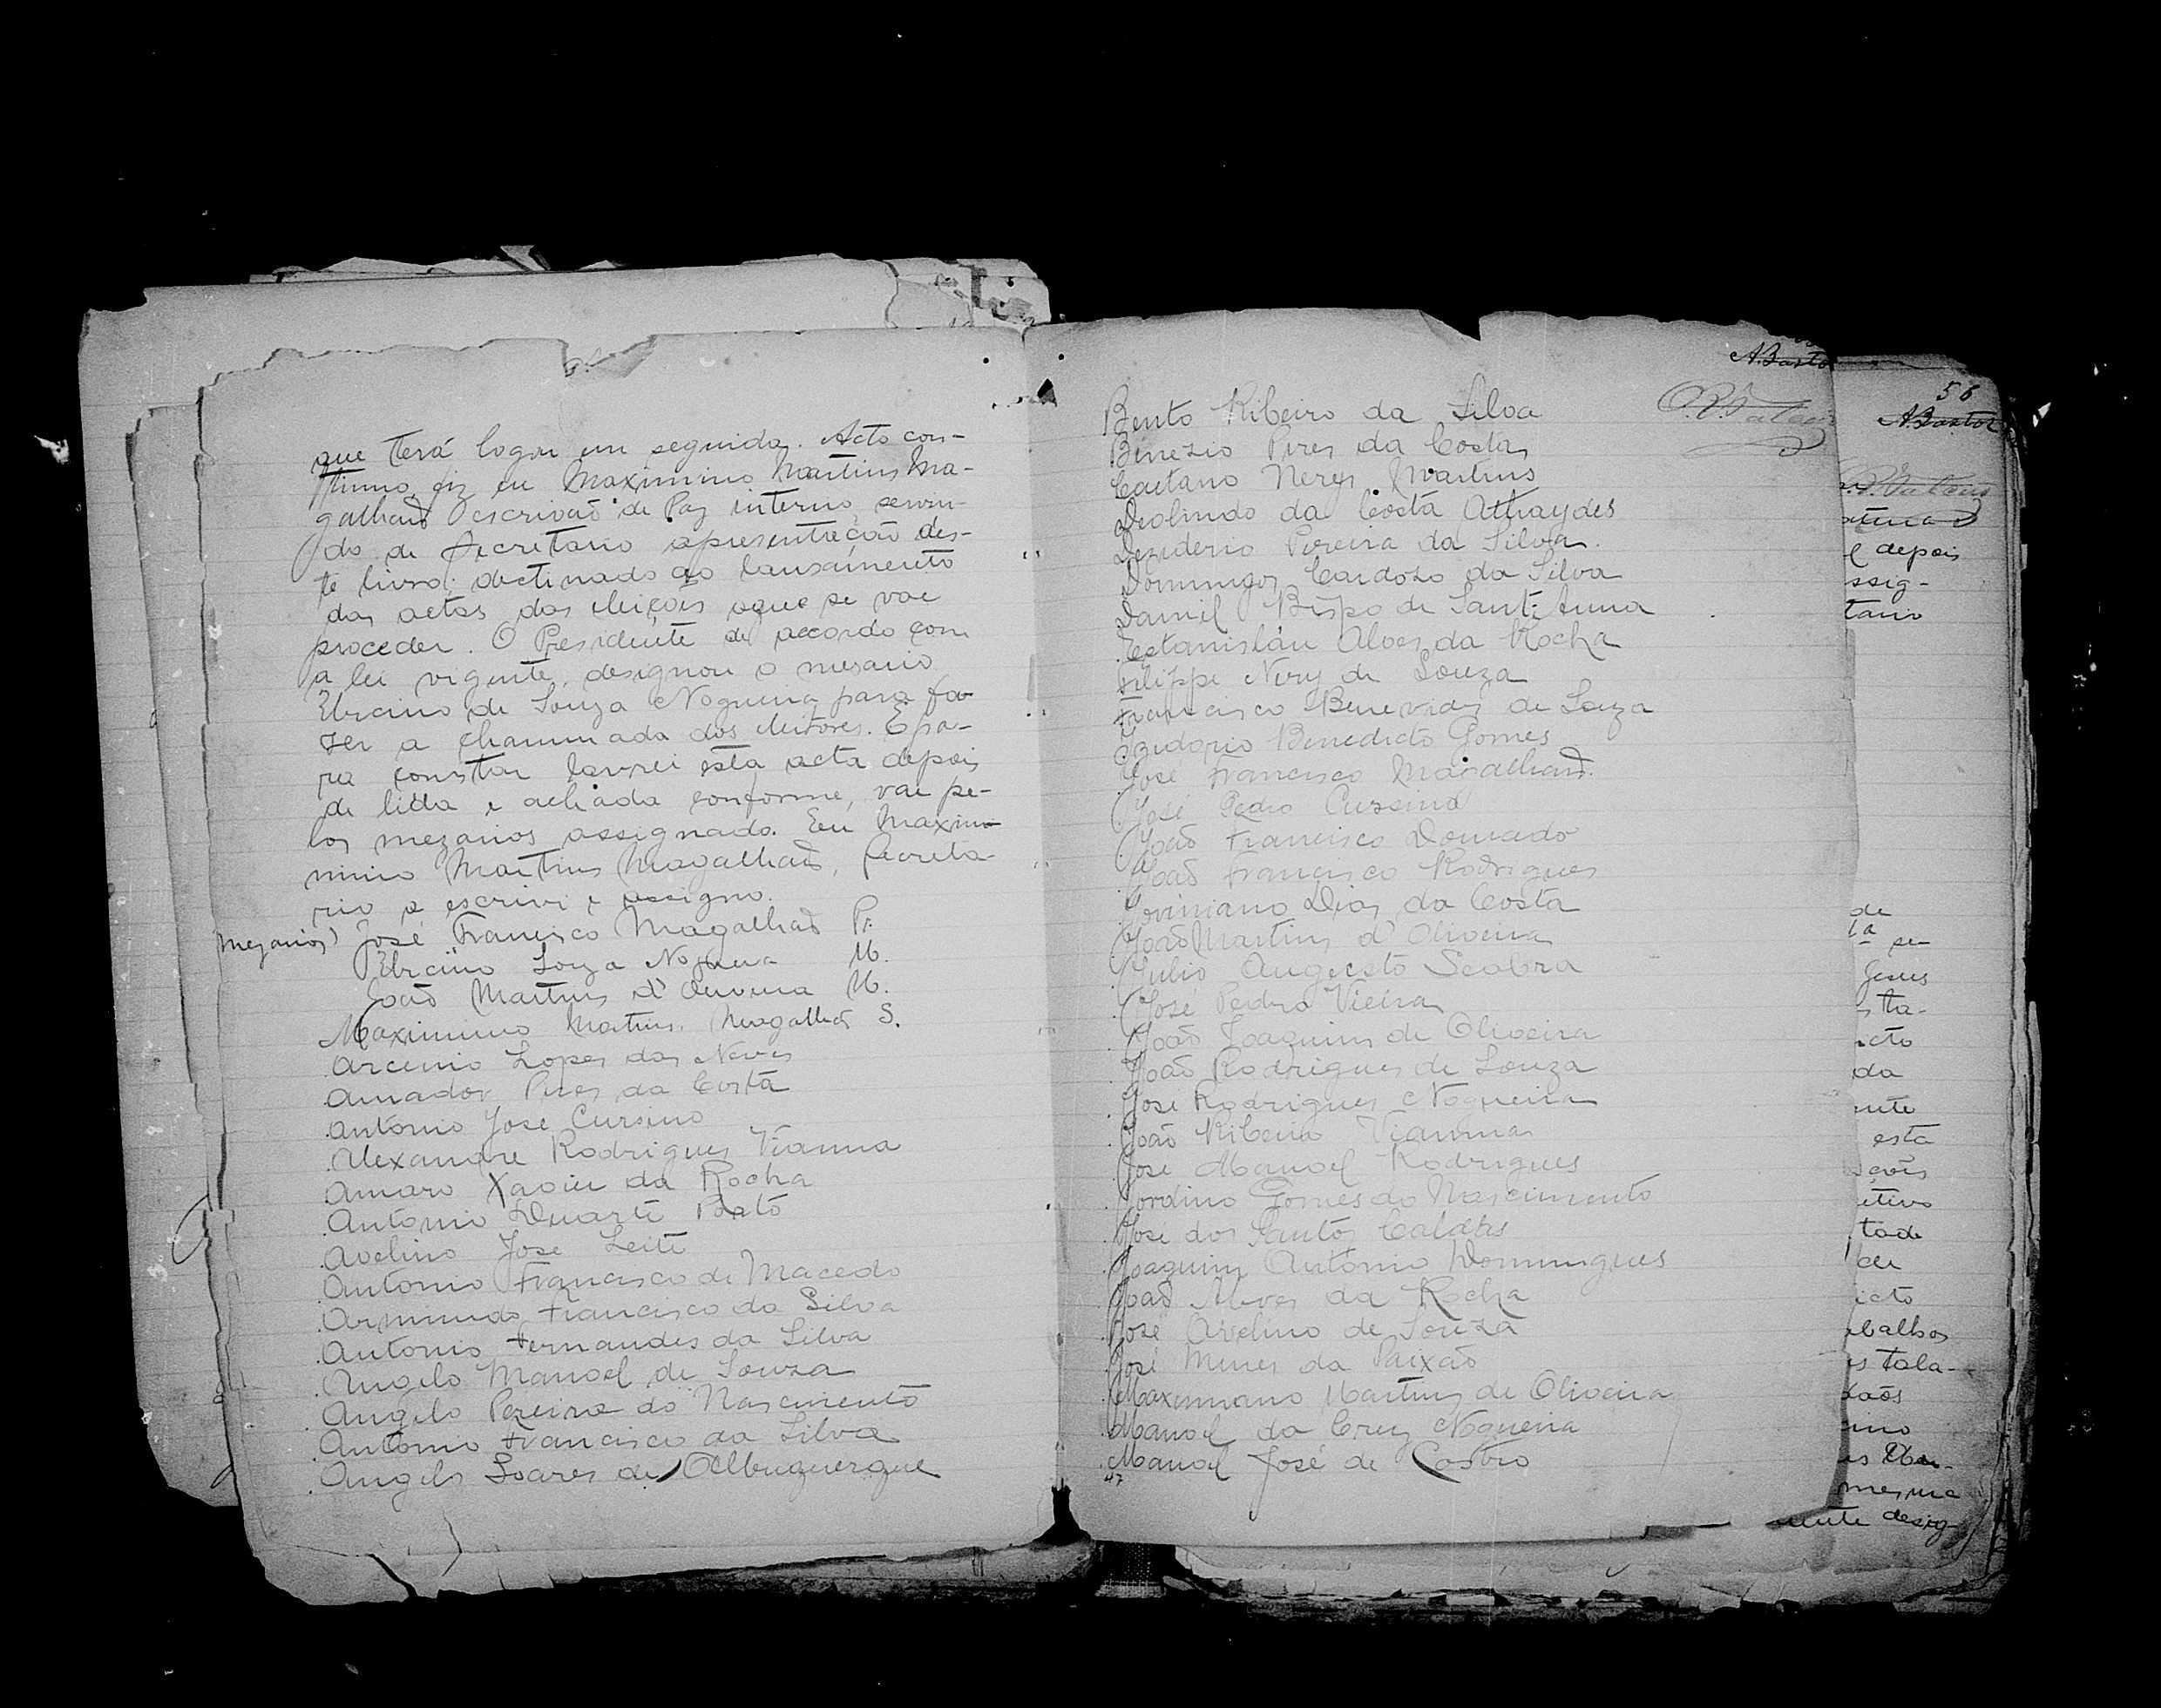 que terá logar em seguida. Acto con-
tinuo, fiz eu Maximino Martins Ma-
galhaẽs escrivaõ de Paz interino, servin-
do de Secretario apresentação des-
te livro, destinado ao lansamento
das actas das eleições a que se vae
proceder. O Presidente de accordo com
a lei vigente, designou o mesario
Elreino de Souza Nogueira para fa-
zer a chammada dos eleitores. E pa-
ra constar lavrei esta acta depois
de lida e achada conforme, vae pe-
los mezarios assignado. Eu Maximi-
nino Martins Magalhaẽs, Secreta-
rio a escrivi e assigno.
Mezarios) José Francisco Magalhaẽs Pr.
Souza Nogueira M.
Joaõ Martins d'Oliveira M.
Maximino Martins Magalhaẽs S.
Arcenio Lopes das Neves
Amador Pires da Costa
Antonio José Cursino
Alexandre Rodrigues Vianna
Amaro Xavier da Rocha
Antonio Duarte Porto
Avelino José Leite
Antonio Francisco de Macedo
Armindo Francisco da Silva
Antonio Fernandes da Silva
Angelo Manoel de Souza
Angelo Pereira do Nascimento
Antonio Francisco da Silva
Angelo Soares de Albuquerque
A. Bastos
Bento Ribeiro da Silva
Binezio Pires da Costa
Caetano Nerys Martins
Deolindo da Costa Athaydes
Deziderio Pereira da Silva.
Domingos Cardozo da Silva
Daniel Bispo de Sant'Anna
Estanislau Alves da Rocha
Filippe Nery de Souza
Francisco Benevides de Souza
Izidorio Benedicto Gomes
José Francisco Magalhaẽs.
José Pedro Cursino
Joaõ Francisco Dourado
Joaõ Francisco Rodrigues
Joviniano Dias da Costa
Joaõ Martins d'Oliveira
Julio Augusto Seabra
José Pedro Vieira
Joaõ Joaquim de Oliveira
Joaõ Rodrigues de Souza
José Rodrigues Nogueira
Joaõ Ribeiro Vianna
José Manoel Rodrigues
Jordino Gomes do Nascimento
José dos Santos Caldas
Joaquim Antonio Domingues
Joaõ Alves da Rocha
José Avelino de Souza
José Nunes da Paixaõ
Maximiano Martins de Oliveira
Manoel da Cruz Nogueira
Manoel José de Castro
47
56
A. Bastos
depois
ssig-
tario
de
ta se-
Jesus
ta-
cto
da
ente
esta
ções
etivo
tade
cer
icto
abalhos
tala-
daõs
ino
mesma
mente desig-